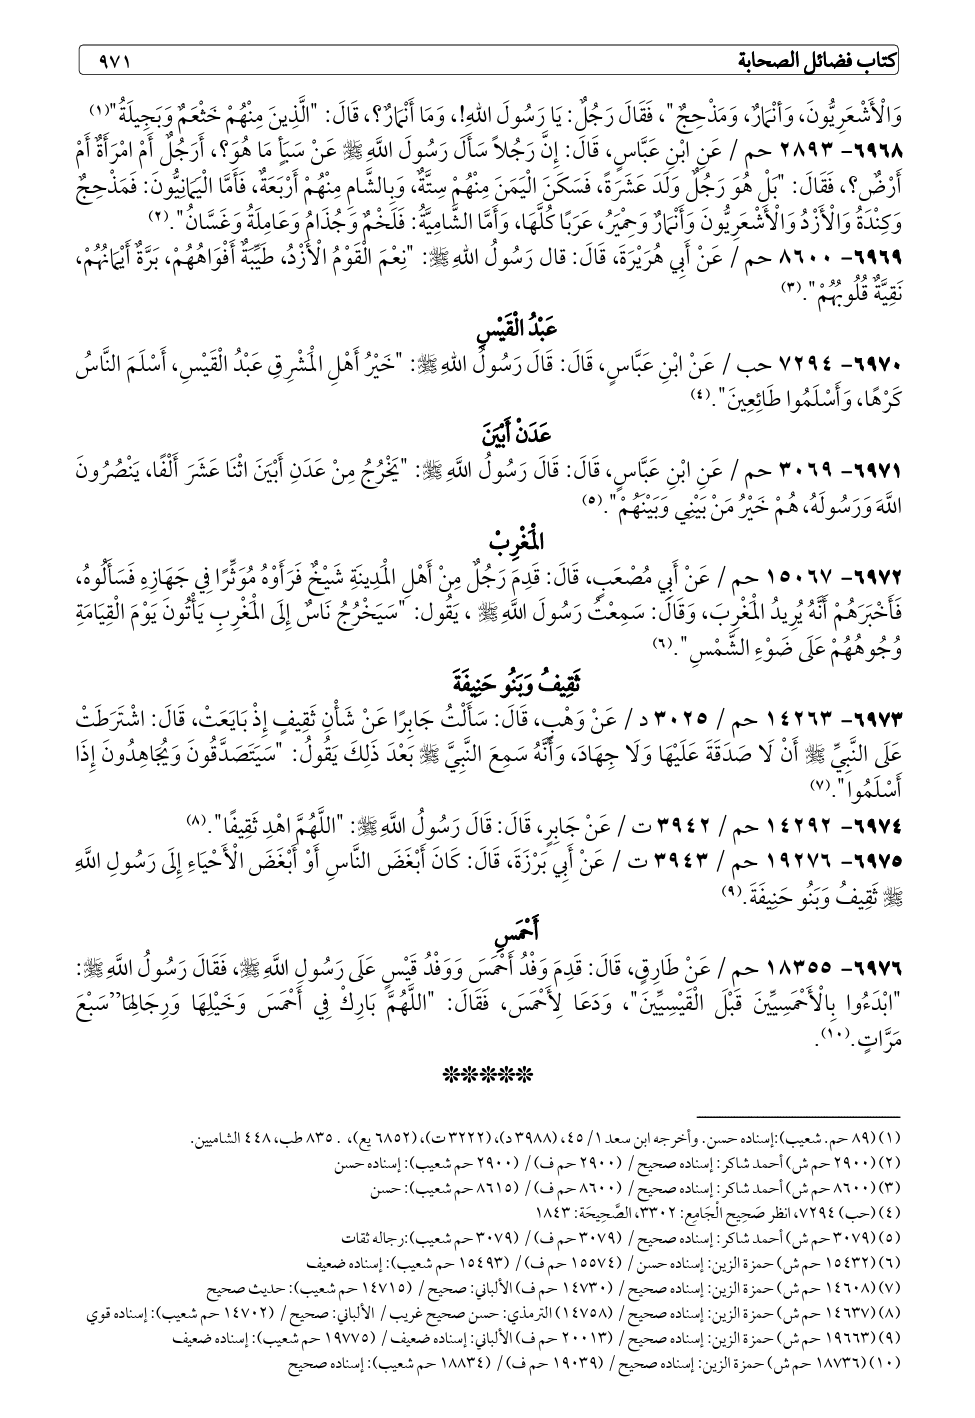 كتاب فضائل الصحابة ٩٧١
وَالْأَشْعَرِيُّونَ، وَأَنْمَارٌ، وَمَذْحِجٌ"، فَقَالَ رَجُلٌ: يَا رَسُولَ اللهِ!، وَمَا أَنْمَارٌ؟، قَالَ: "الَّذِينَ مِنْهُمْ خَثْعَمٌ وَبَجِيلَةُ"(١)
٦٩٦٨- ٢٨٩٣ حم / عَنِ ابْنِ عَبَّاسٍ، قَالَ: إِنَّ رَجُلاً سَأَلَ رَسُولَ اللَّهِ ﷺ عَنْ سَبَأٍ مَا هُوَ؟، أَرَجُلٌ أَمْ امْرَأَةٌ أَمْ
أَرْضٌ؟، فَقَالَ: "بَلْ هُوَ رَجُلٌ وَلَدَ عَشَرَةً، فَسَكَنَ الْيَمَنَ مِنْهُمْ سِتَّةٌ، وَبِالشَّامِ مِنْهُمْ أَرْبَعَةٌ، فَأَمَّا الْيَمَانِيُّونَ: فَمَذْحِجٌ
وَكِنْدَةُ وَالْأَزْدُ وَالْأَشْعَرِيُّونَ وَأَنْمَارٌ وَحِمْيَرُ، عَرَبًا كُلَّهَا، وَأَمَّا الشَّامِيَّةُ: فَلَخْمٌ وَجُذَامُ وَعَامِلَةُ وَغَسَّانُ".(٢)
٦٩٦٩- ٨٦٠٠ حم / عَنْ أَبِي هُرَيْرَةَ، قَالَ: قال رَسُولُ اللهِ ﷺ: "نِعْمَ الْقَوْمُ الْأَزْدُ، طَيِّبَةٌ أَفْوَاهُهُمْ، بَرَّةٌ أَيْمَانُهُمْ،
نَقِيَّةٌ قُلُوبُهُمْ".(٣)
عَبْدُ الْقَيْسِ
٦٩٧٠- ٧٢٩٤ حب / عَنْ ابْنِ عَبَّاسٍ، قَالَ: قَالَ رَسُولُ اللهِ ﷺ: "خَيْرُ أَهْلِ الْمَشْرِقِ عَبْدُ الْقَيْسِ، أَسْلَمَ النَّاسُ
كَرْهًا، وَأَسْلَمُوا طَائِعِينَ".(٤)
عَدَنْ أَبْيَنَ
٦٩٧١- ٣٠٦٩ حم / عَنِ ابْنِ عَبَّاسٍ، قَالَ: قَالَ رَسُولُ اللَّهِ ﷺ: "يَخْرُجُ مِنْ عَدَنِ أَبْيَنَ اثْنَا عَشَرَ أَلْفًا، يَنْصُرُونَ
اللَّهَ وَرَسُولَهُ، هُمْ خَيْرُ مَنْ بَيْنِي وَبَيْنَهُمْ".(٥)
الْمَغْرِبْ
٦٩٧٢- ١٥٠٦٧ حم / عَنْ أَبِي مُصْعَبٍ، قَالَ: قَدِمَ رَجُلٌ مِنْ أَهْلِ الْمَدِينَةِ شَيْخٌ فَرَأَوْهُ مُوَثِّرًا فِي جَهَازِهِ فَسَأَلُوهُ،
فَأَخْبَرَهُمْ أَنَّهُ يُرِيدُ الْمَغْرِبَ، وَقَالَ: سَمِعْتُ رَسُولَ اللَّهِ ﷺ ، يَقُول: "سَيَخْرُجُ نَاسٌ إِلَى الْمَغْرِبِ يَأْتُونَ يَوْمَ الْقِيَامَةِ
وُجُوهُهُمْ عَلَى ضَوْءِ الشَّمْسِ".(٦)
ثَقِيفُ وَبَنُو حَنِيفَةَ
٦٩٧٣- ١٤٢٦٣ حم / ٣٠٢٥ د/ عَنْ وَهْبٍ، قَالَ: سَأَلْتُ جَابِرًا عَنْ شَأْنِ ثَقِيفٍ إِذْ بَايَعَتْ، قَالَ: اشْتَرَطَتْ
عَلَى النَّبِيِّ ﷺ أَنْ لَا صَدَقَةَ عَلَيْهَا وَلَا جِهَادَ، وَأَنَّهُ سَمِعَ النَّبِيَّ ﷺ بَعْدَ ذَلِكَ يَقُولُ: "سَيَتَصَدَّقُونَ وَيُجَاهِدُونَ إِذَا
أَسْلَمُوا".(٧)
٦٩٧٤- ١٤٢٩٢ حم / ٣٩٤٢ ت / عَنْ جَابِرٍ، قَالَ: قَالَ رَسُولُ اللَّهِ ﷺ: "اللَّهُمَّ اهْدِ ثَقِيفًا".(٨)
٦٩٧٥- ١٩٢٧٦ حم / ٣٩٤٣ ت / عَنْ أَبِي بَرْزَةَ، قَالَ: كَانَ أَبْغَضَ النَّاسِ أَوْ أَبْغَضَ الْأَحْيَاءِ إِلَى رَسُولِ اللَّهِ
ﷺ ثَقِيفُ وَبَنُو حَنِيفَةَ.(٩)
أَحْمَسِ
٦٩٧٦- ١٨٣٥٥ حم / عَنْ طَارِقٍ، قَالَ: قَدِمَ وَفْدُ أَحْمَسَ وَوَفْدُ قَيْسٍ عَلَى رَسُولِ اللَّهِ ﷺ، فَقَالَ رَسُولُ اللَّهِ ﷺ:
"ابْدَءُوا بِالْأَحْمَسِيِّينَ قَبْلَ الْقَيْسِيِّينَ"، وَدَعَا لِأَحْمَسَ، فَقَالَ: "اللَّهُمَّ بَارِكْ فِي أَحْمَسَ وَخَيْلِهَا وَرِجَالِهَا"سَبْعَ
مَرَّاتٍ.(١٠).
*****
(١) (٨٩ حم. شعيب):إسناده حسن. وأخرجه ابن سعد ١/ ٤٥، (٣٩٨٨ د)، (٣٢٢٢ ت)، (٦٨٥٢ يع)، . ٨٣٥ طب، ٤٤٨ الشاميين.
(٢) (٢٩٠٠ حم ش) أحمد شاكر: إسناده صحيح / (٢٩٠٠ حم ف)/ (٢٩٠٠ حم شعيب): إسناده حسن
(٣) (٨٦٠٠ حم ش) أحمد شاكر: إسناده صحيح / (٨٦٠٠ حم ف)/ (٨٦١٥ حم شعيب): حسن
(٤) (حب) ٧٢٩٤، انظر صَحِيح الْجَامِع: ٣٣٠٢، الصَّحِيحَة: ١٨٤٣
(٥) (٣٠٧٩ حم ش) أحمد شاكر: إسناده صحيح / (٣٠٧٩ حم ف)/ (٣٠٧٩ حم شعيب):رجاله ثقات
(٦) (١٥٤٣٢ حم ش) حمزة الزين: إسناده حسن / (١٥٥٧٤ حم ف)/ (١٥٤٩٣ حم شعيب): إسناده ضعيف
(٧) (١٤٦٠٨ حم ش) حمزة الزين: إسناده صحيح / (١٤٧٣٠ حم ف) الألباني: صحيح / (١٤٧١٥ حم شعيب): حديث صحيح
(٨) (١٤٦٣٧ حم ش) حمزة الزين: إسناده صحيح / (١٤٧٥٨) الترمذي: حسن صحيح غريب / الألباني: صحيح / (١٤٧٠٢ حم شعيب): إسناده قوي
(٩) (١٩٦٦٣ حم ش) حمزة الزين: إسناده صحيح / (٢٠٠١٣ حم ف) الألباني: إسناده ضعيف / (١٩٧٧٥ حم شعيب): إسناده ضعيف
(١٠) (١٨٧٣٦ حم ش) حمزة الزين: إسناده صحيح / (١٩٠٣٩ حم ف)/ (١٨٨٣٤ حم شعيب): إسناده صحيح